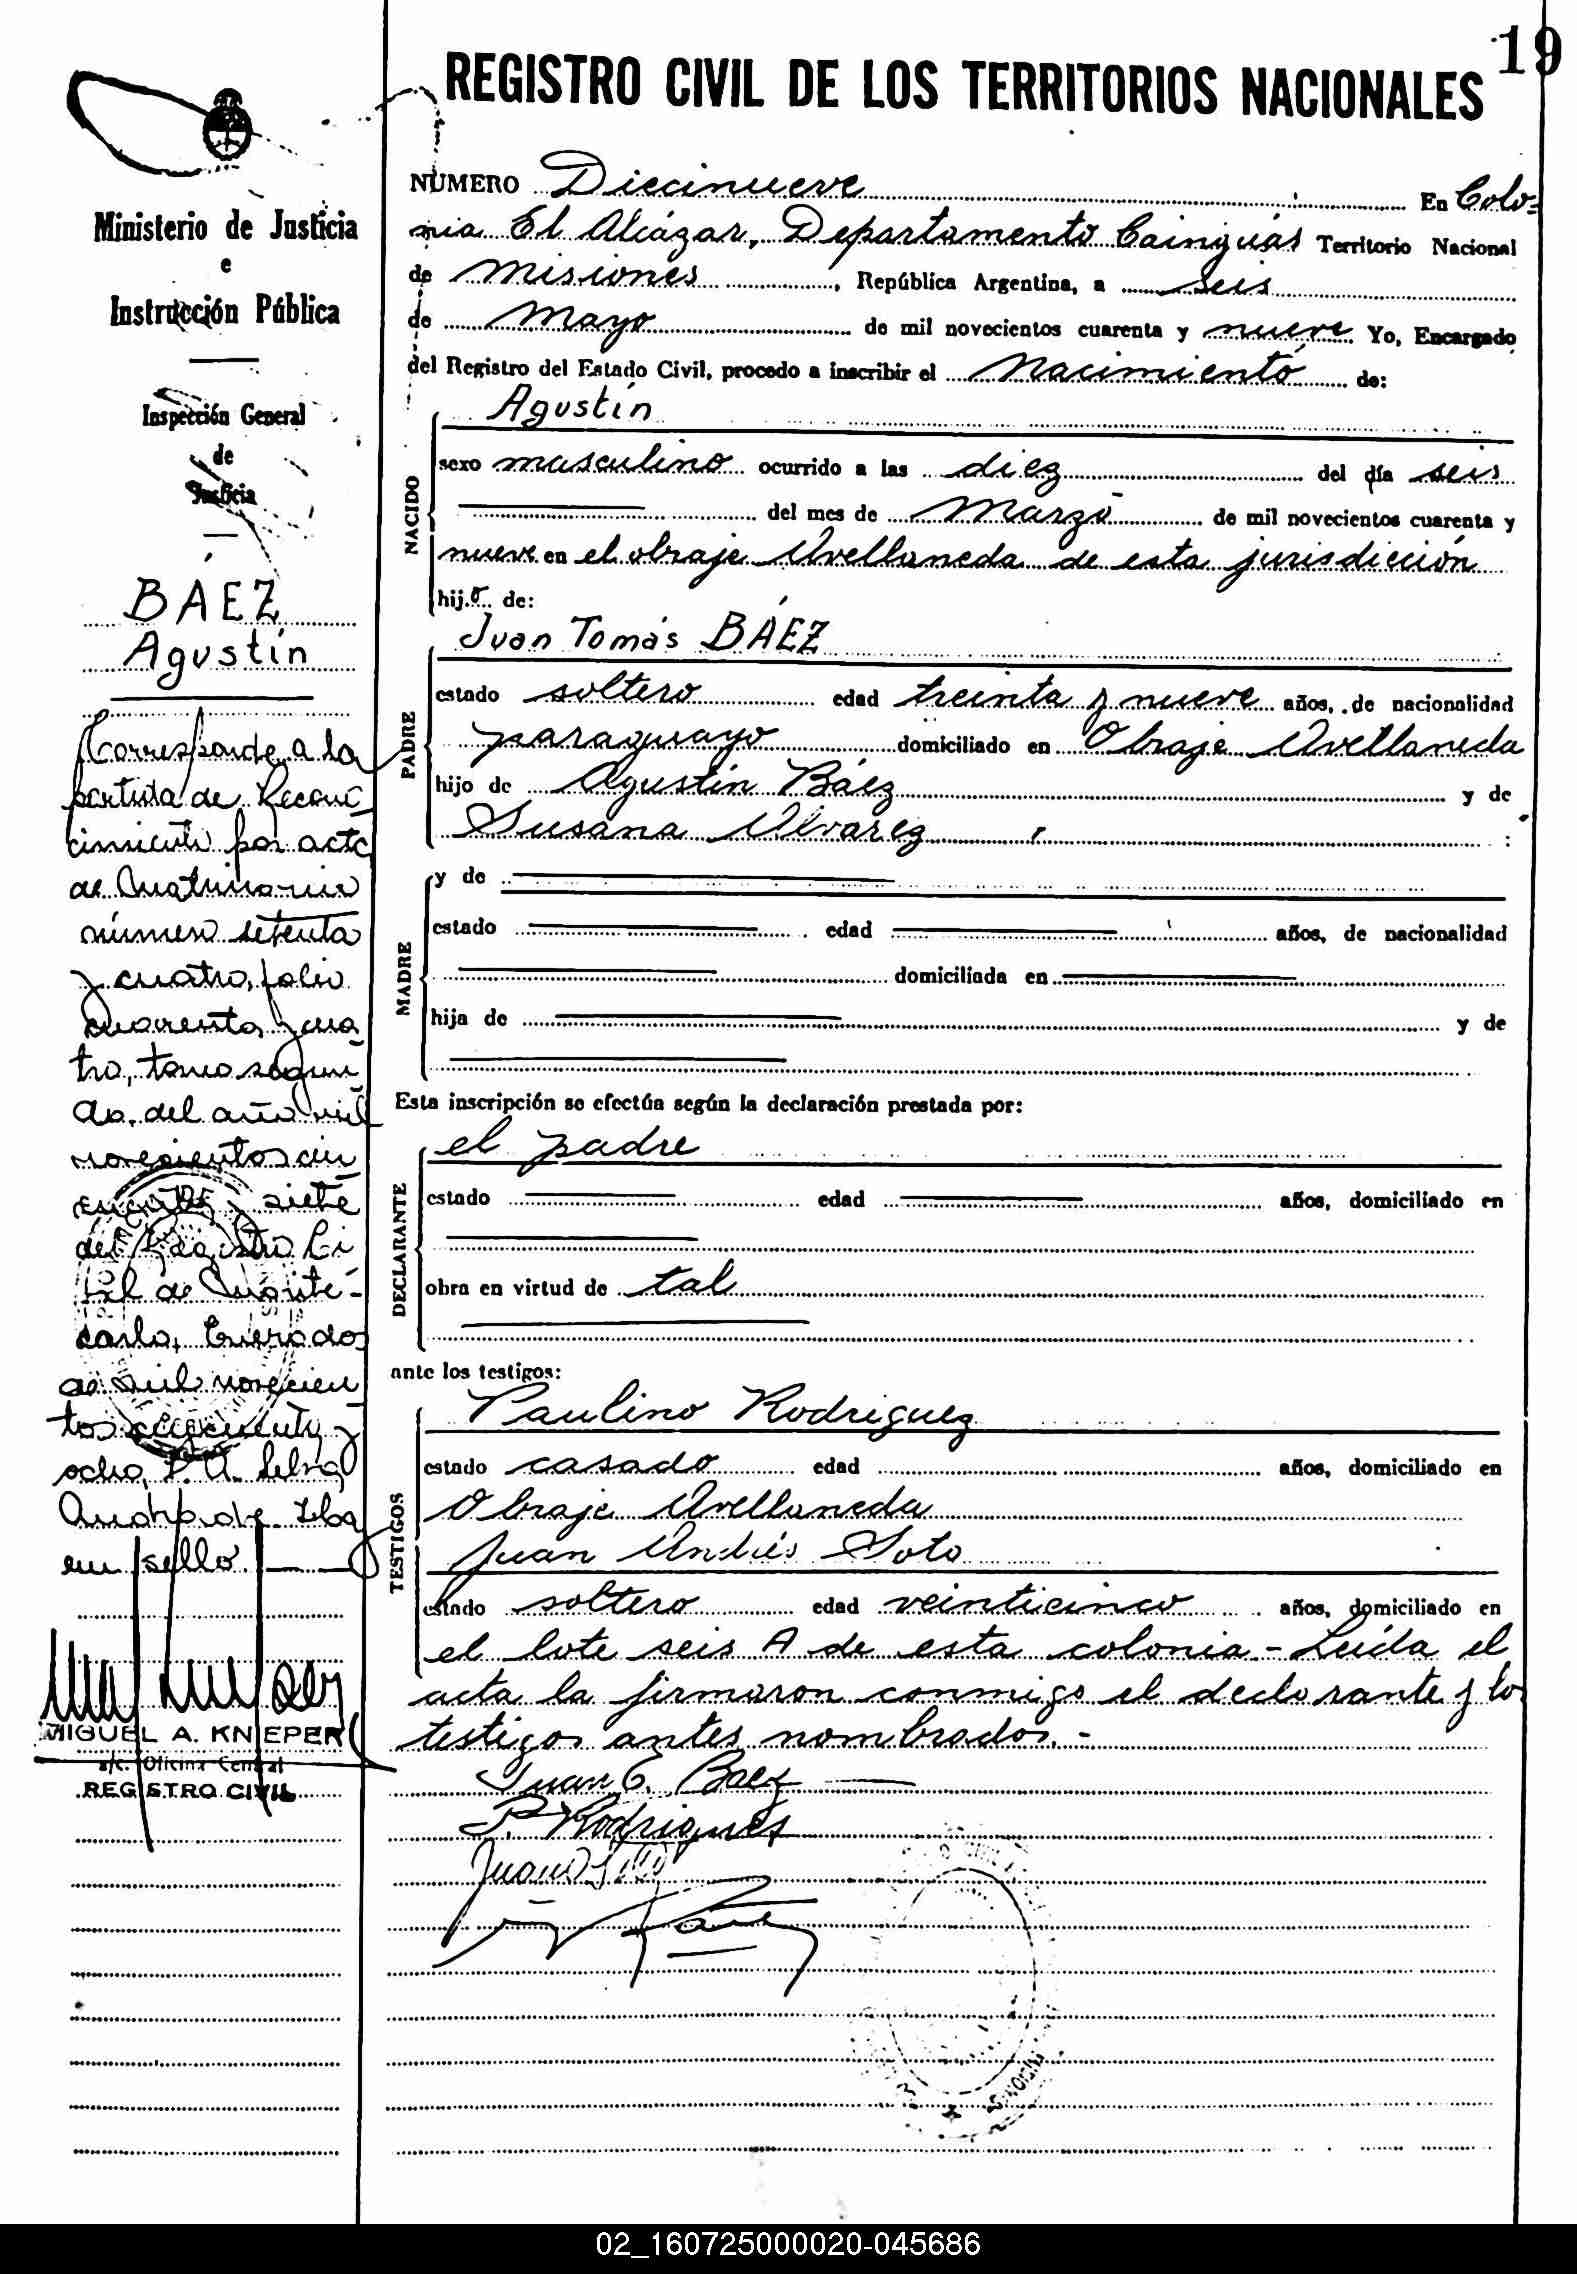 19
REGISTRO CIVIL DE LOS TERRITORIOS NACIONALES
Ministerio de Justicia
e
Instrucción Pública
Inspección General
de
Justicia
BÁEZ
Agustín
Corresponde a la
partida de Recono
cimiento por acta
de Matrimonio
número setenta
y cuatro, folio
cuarenta y cua
tro, tomo segun
do, del año mil
novecientos cin
cuenta y siete
del Registro Ci
vil de Monte-
carlo, Enero dos
de mil novecien
tos cincuenta y
ocho,
en sello.
MIGUEL A. KNIEPER
a/c. Oficina Central
REGISTRO CIVIL
NÚMERO Diecinueve En Colo=
nia El Alcázar, Departamento Cainguás Territorio Nacional
de Misiones, República Argentina, a seis
de Mayo de mil novecientos cuarenta y nueve Yo, Encargado
del Registro del Estado Civil, procedo a inscribir el Nacimiento de:
NACIDO
Agustín
sexo masculino ocurrido a las diez del día seis
del mes de Marzo de mil novecientos cuarenta y
nueve en el obraje Avellaneda de esta jurisdicción
hijo de:
PADRE
Juan Tomás BÁEZ
estado soltero edad treinta y nueve años, de nacionalidad
paraguayo domiciliado en Obraje Avellaneda
hijo de Agustín Báez y de
Susana Alvarez
MADRE
y de
estado edad años, de nacionalidad
domiciliada en
hija de y de
Esta inscripción se efectúa según la declaración prestada por:
DECLARANTE
el padre
estado edad años, domiciliado en
obra en virtud de tal
ante los testigos:
TESTIGOS
Paulino Rodriguez
estado casado edad años, domiciliado en
Obraje Avellaneda
Juan Andrés Soto
estado soltero edad veinticinco años, domiciliado en
el lote seis A de esta colonia - Leída el
acta la firmaron conmigo el declarante y los
testigos antes nombrados.-
Juan T. Baez
P. Rodrigues
Juan A Soto
02_160725000020-045686